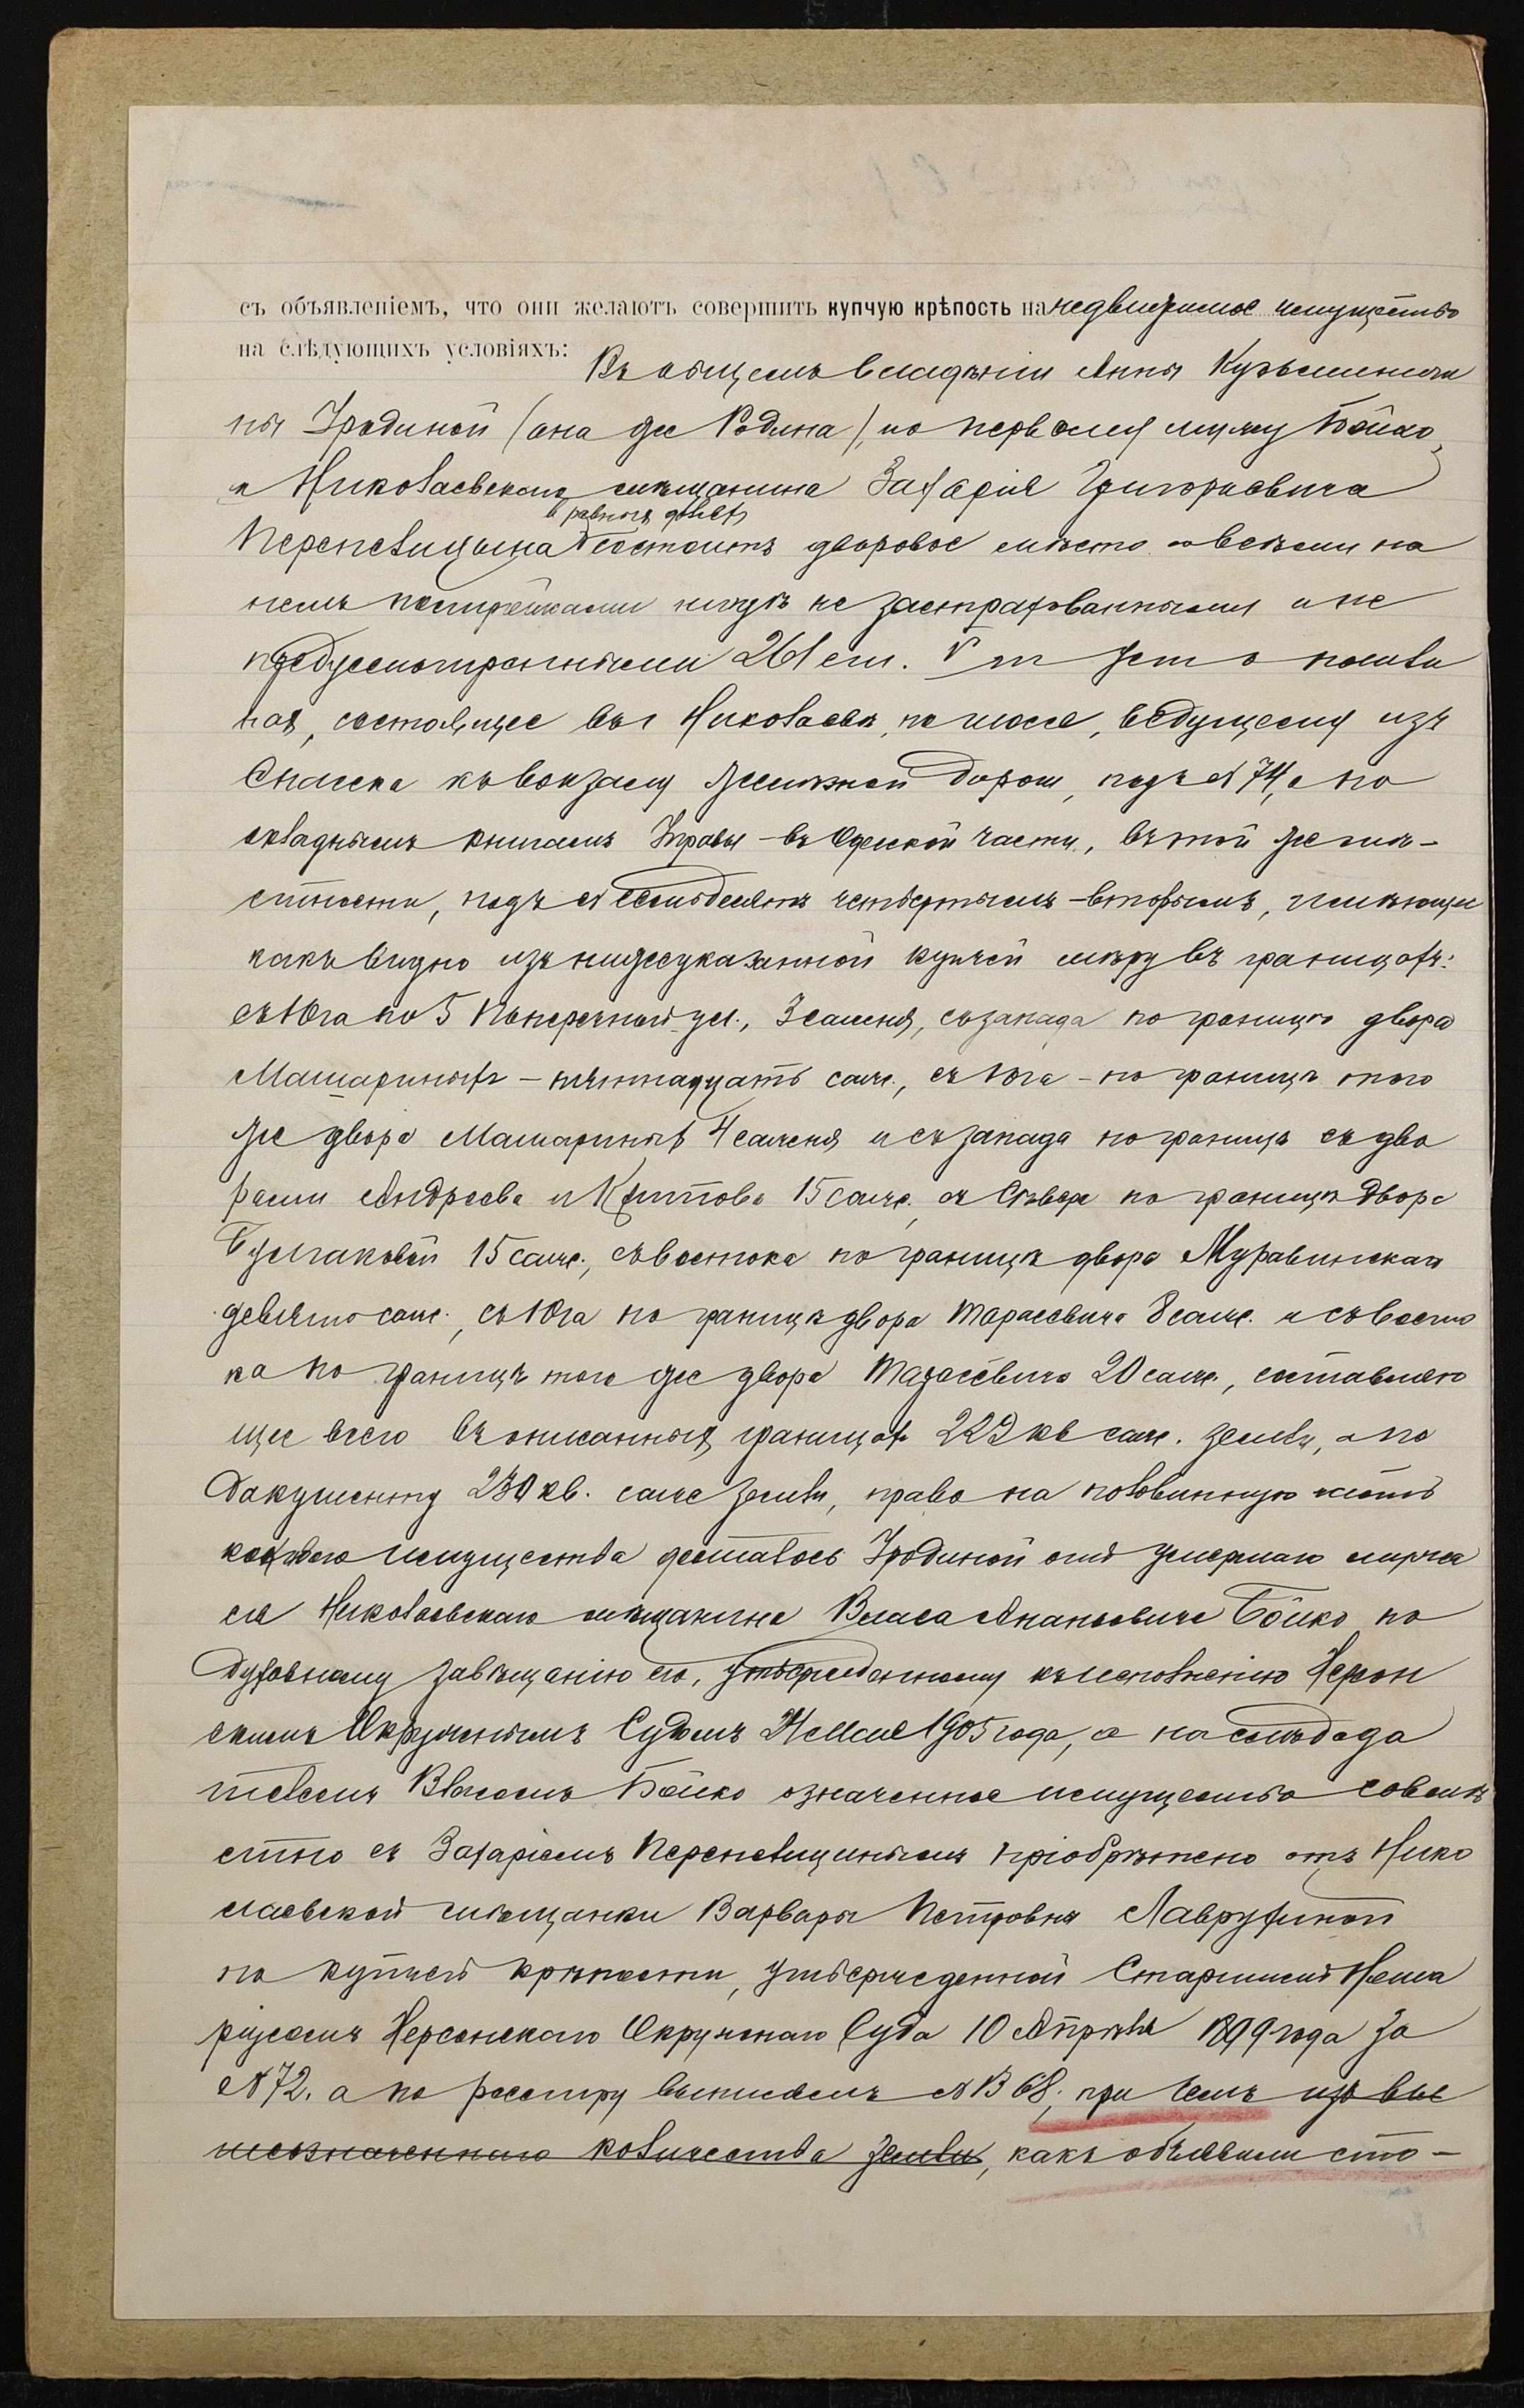 съ объявленіемъ, что они желаютъ совершить купчую крѣпость на недвижимое имущество
на слѣдующихъ условіяхъ:
Въ общемъ владѣніи Анны Кузьминич
ны Уродиной (она же Родина), по первому мужу Бойко,
и Николаевскаго мѣщанина Захарія Григорьевича
въ равныхъ доляхъ
Перепелицына состоитъ дворовое мѣсто со всѣми на
немъ постройками нигдѣ не застрахованными и не
предусмотрѣнными 261 ст. V т Уст о пошли
нахъ, состоящее въ г Николаевѣ, по шоссе, ведущему изъ
Спасска къ вокзалу желѣзной дороги, подъ № 74, а по
окладнымъ книгамъ Управы – въ Одесской части, въ той же мѣ-
стности, подъ № семьдесятъ четвертымъ - вторымъ, имѣющее
какъ видно изъ нижеуказанной купчей мѣру въ границахъ:
съ Юга по 5 Поперечной ул., 3 сажени, съ запада по границѣ двора
Машариныхъ – пятнадцать саж., съ Юга – по границѣ того
же двора Машариныхъ 4 сажени и съ запада по границѣ съ дво
рами Андреева и 15 саж., съ Сѣвера по границѣ двора
15 саж., съ востока по границѣ двора Муравинскаго
девять саж., съ Юга по границѣ двора Тарасевича 8 саж. и съ восто
ка по границѣ того же двора Тарасевича 20 саж., составляю
щее всего въ описанныхъ границахъ кв саж. земли, а по
документу 230 кв. саж земли, право на половинную часть
коего имущества досталось Уродиной отъ умершаго мужа
ея Николаевскаго мѣщанина Власа Ананьевича Бойко по
духовному завѣщанію его, утвержденному къ исполненію Херсон
скимъ Окружнымъ Судомъ Мая 1905 года, а наслѣдода
телемъ Власомъ Бойко означенное имущество совмѣ
стно съ Захаріемъ Перепелицинымъ пріобрѣтено отъ Нико
лаевской мѣщанки Варвары Петровны Лаврухиной
по купчей крѣпости, утвержденной Старшимъ Нота
ріусомъ Херсонскаго Окружнаго Суда 10 Апрѣля 1899 года за
№ 72. а по реестру выписямъ № В 68; при чемъ изъ вы
шеозначеннаго количества земли, какъ объявили сто-